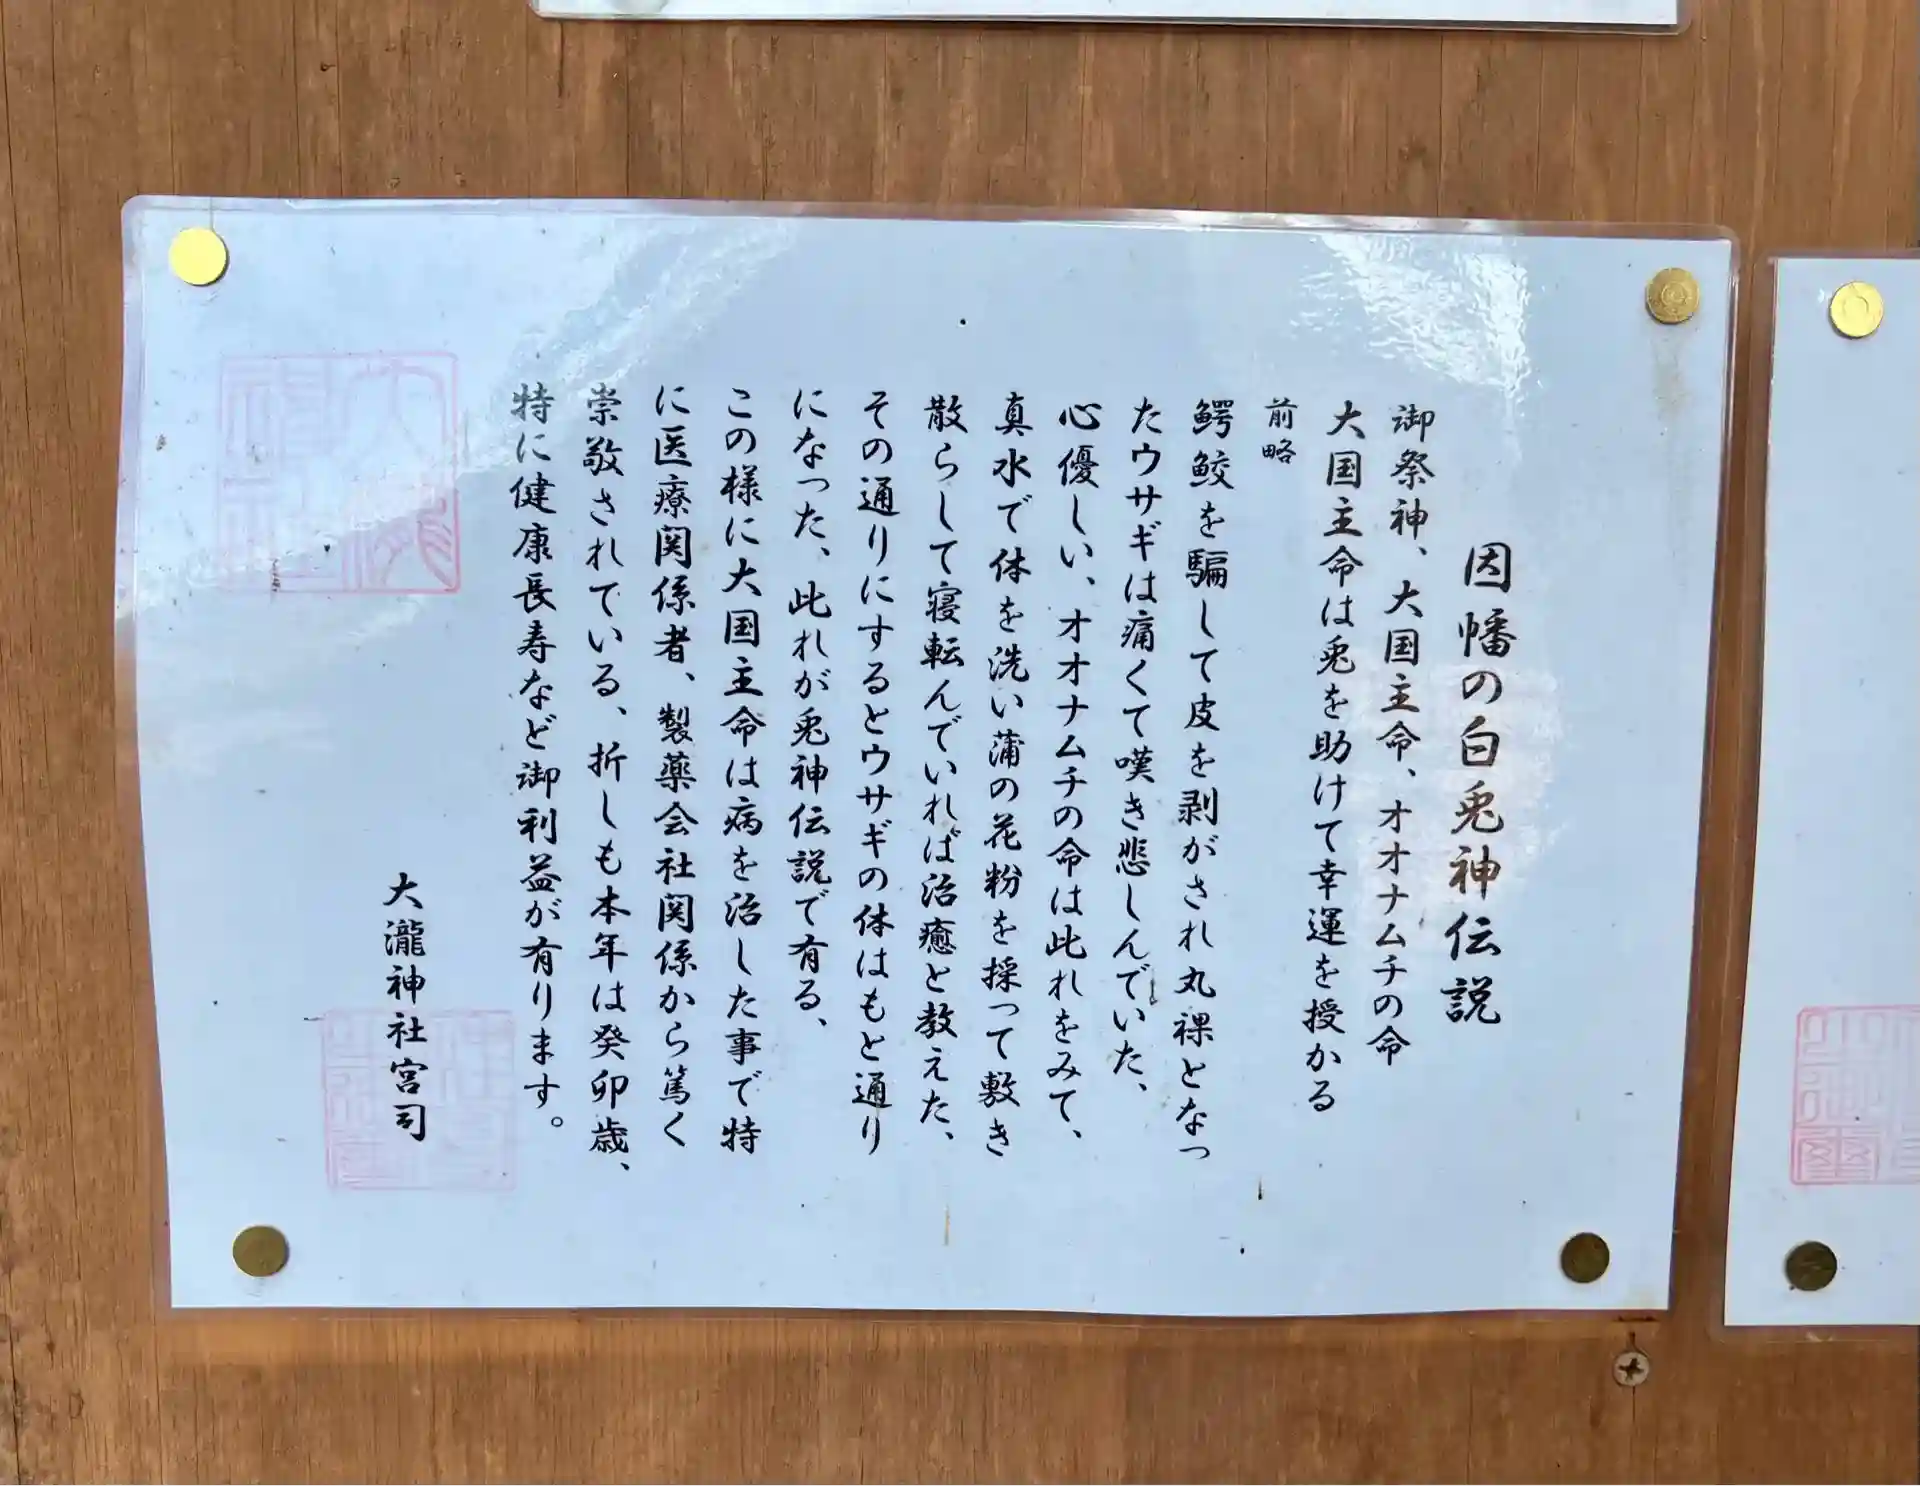 因幡の白兎神伝説
御祭神、大国主命、オオナムチの命
大国主命は兎を助けて幸運を授かる
前略
鰐鮫を騙して皮を剥がされ丸裸となっ
たウサギは痛くて嘆き悲しんでいた、
心優しい、オオナムチの命は此れをみて、
真水で体を洗い蒲の花粉を採って敷き
散らして寝転んでいれば治癒と教えた、
その通りにするとウサギの体はもと通り
になった、此れが兎神伝説で有る、
この様に大国主命は病を治した事で特
に医療関係者、製薬会社関係から篤く
崇敬されている、折しも本年は癸卯歳、
特に健康長寿など御利益が有ります。
大瀧神社宮司